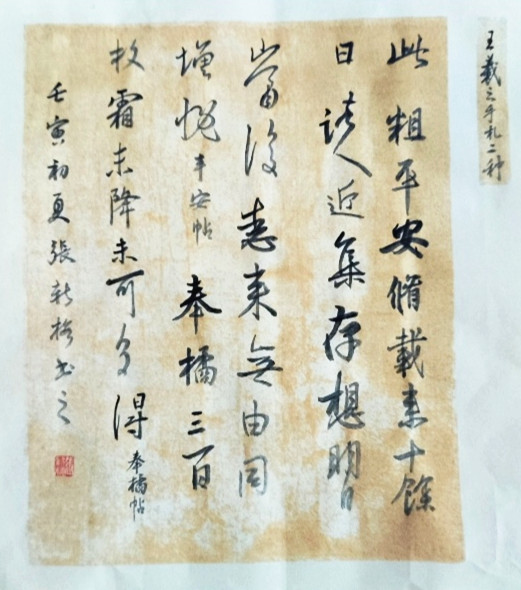 王羲之手札二种
此粗平安脩載来十餘
日諸人近集存想明日
當復悉来無由同
增慨平安帖 奉橘三百
枚霜未降未可多得奉橘帖
壬寅初夏張新培書之